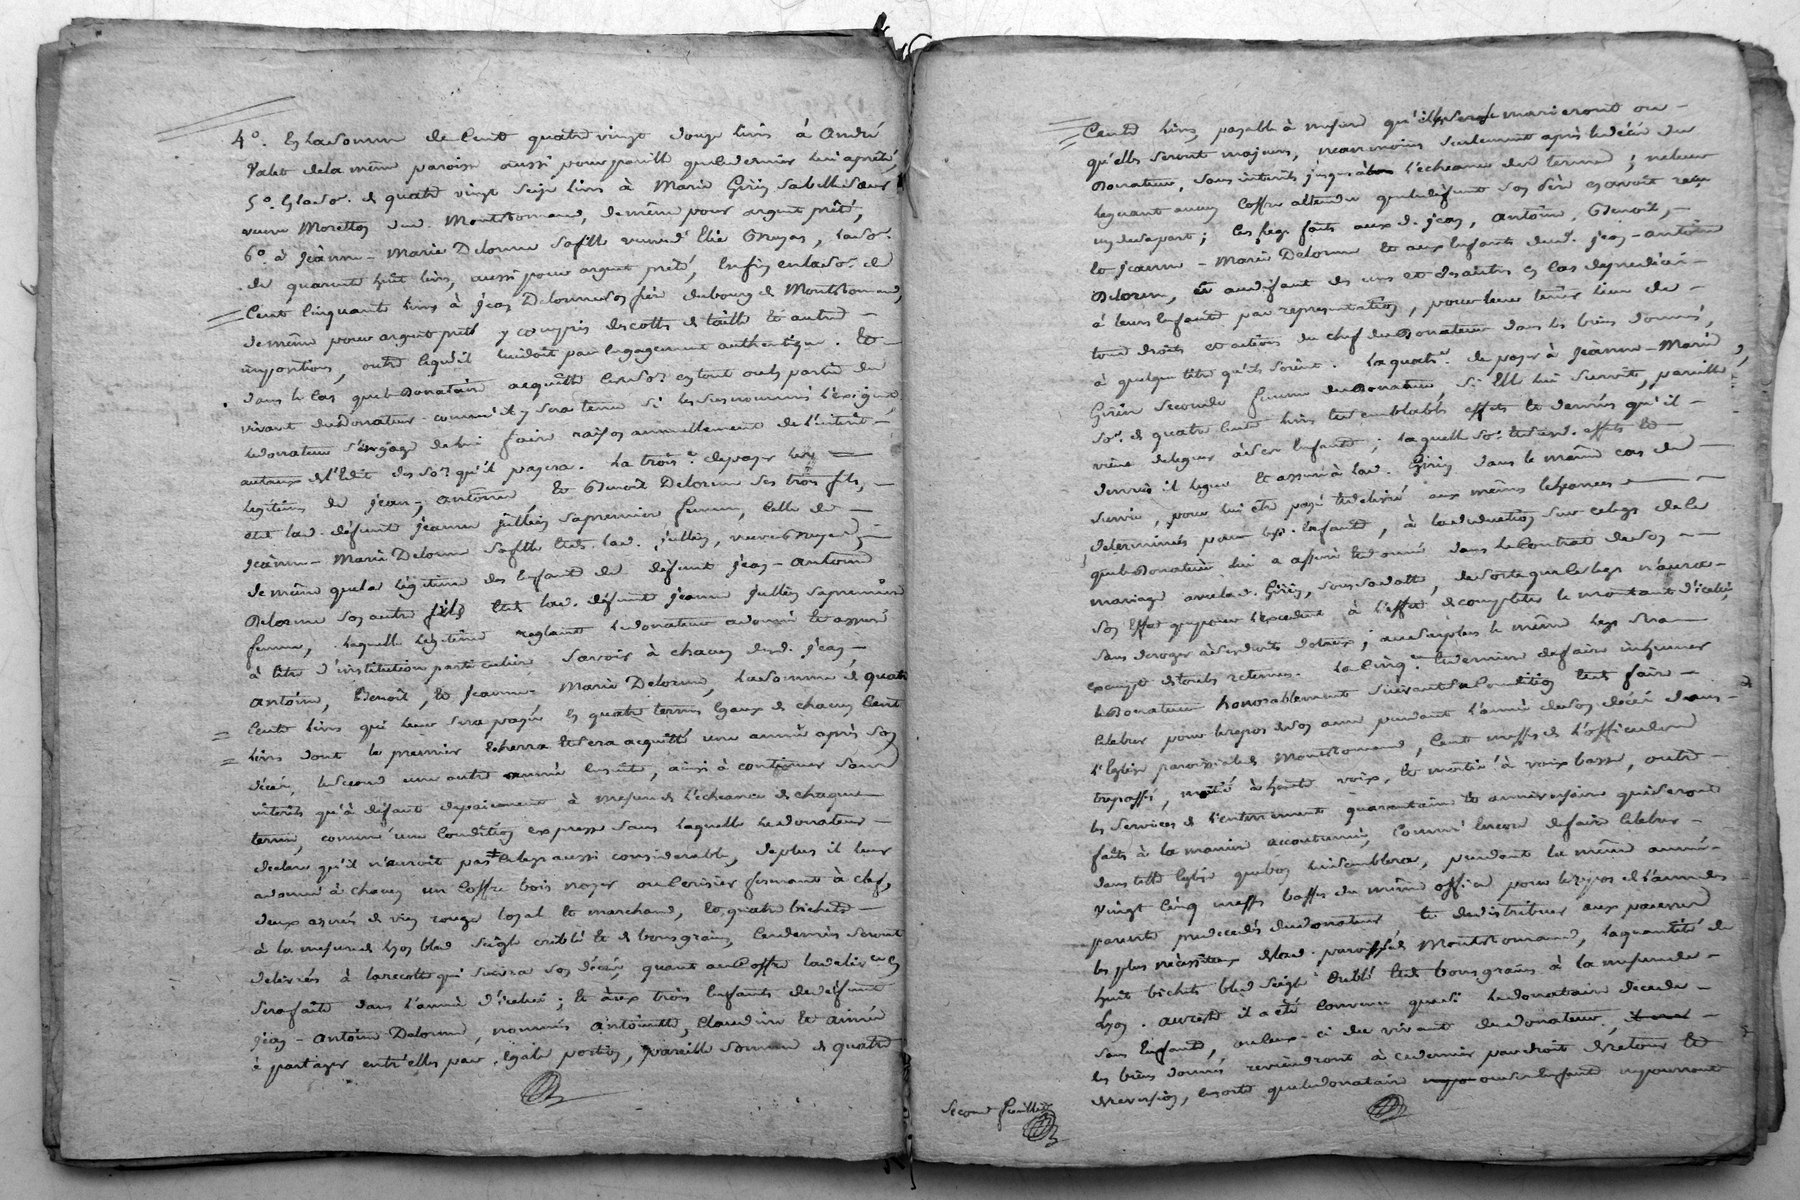 4°. En la somme de Cent quatre vingt douze livres à André
Valet de la même paroisse aussi pour pareille que ce dernier lui a prêté,
5°. En la so.e de quatre vingt seize livres à Marie Girin sa belle soeur
veuve Moretton dud. Montromand, de même pour argent prêté,
6°. à Jeanne-Marie Delorme sa fille veuve d'Elie Gruyas, la so.e
de quarante huit livres, aussi pour argent prêté, Enfin en la so.e de
Cent Cinquante livres à Jean Delorme son frère du bourg de Montromand,
de même pour argent prêté y compris des cottes de taille et autres
impositions, outre ce qu'il lui doit par engagement authentique. Et
dans le cas que le Donataire acquitte lesd. so.es en tout ou en partie du
vivant du donateur comme il y sera tenu si les susnommés l'exigent,
le donateur s'engage de lui faire raison annuellement de l'intérêt
au taux de l'Edit des so.es qu'il payera. La trois.e de payer les
légitimes de Jean, Antoine, et Benoit Delorme ses trois fils,
et de lad. défunte Jeanne Jullien sa première femme, celle de
Jeanne-Marie Delorme sa fille et de lad. Jullien, veuve Gruyas,
de même que la légitime des Enfants de défunt Jean-Antoine
Delorme son autre fils et de lad. défunte Jeanne Jullien sa première
femme, laquelle légitime reglant le donateur a donné et assuré
à titre d'institution particulière savoir à chacun desd. Jean,
Antoine, Benoit, et Jeanne-Marie Delorme, la somme de quatre
Cents livres qui leur sera payée en quatre termes égaux de chacun Cent
livres dont le premier écherra et sera acquitté une année après son
décès, le second une autre année ensuite, ainsi à continuer sans
intérêts qu'à défaut de paiement à mesure de l'échéance de chaque
terme, comme une Condition expresse sans laquelle le donateur
déclare qu'il n'auroit pas fait ce legs aussi considerable, de plus il leur
a donné à chacun un Coffre bois noyer ou Cerisier fermant à clef,
deux asnées de vin rouge loyal et marchand, et quatre bichets
à la mesure de Lyon bled seigle criblé et de bons grains, Ces denrées seront
delivrés à la recolte qui suivra son décès, quant au Coffre la delivrance en
sera faite dans l'année d'icelui; et aux trois Enfants de défunt
Jean-Antoine Delorme, nommés Antoinette, Claudine et Aimée
à partager entr'elles par égale portion, pareille somme de quatre
Cents livres, payable à mesure qu'elles se marieront ou
qu'elles seront majeures, néanmoins seulement après le décès du
Donateur, sans intérêts jusques à l'échéance du terme; ne leur
léguant aucun Coffre attendu que le défunt son père en avoit reçu
un de sa part; les legs faits aux d. Jean, Antoine, Benoit,
et Jeanne-Marie Delorme et aux Enfants dud. Jean-Antoine
Delorme, et au défaut des uns et des autres en cas de prédécès
à leurs Enfants par représentation, pour leur tenir lieu de
tous droits et actions du chef du Donateur dans les biens donnés,
à quelque titre qu'ils soient. La quatr.e de payer à Jeanne-Marie
Girin seconde femme du Donateur, si Elle lui survit, pareille
so.e de quatre Cents livres et semblables effets et denrées qu'il
vient de leguer à ses Enfants; laquelle so.e et lesd. effets et
denrées il lègue et assure à lad. Girin dans le même cas de
survie, pour lui être payé et delivré aux mêmes Echéances
determinées pour lesd. Enfants, à la déduction sur ce legs de la
que le Donateur lui a assuré et donné dans le Contrat de son
mariage avec lad. Girin, sous sa datte, de sorte que le legs n'aura
son effet que pour l'excedent à l'effet de completer le montant d'icelui,
sans deroger à ses droits dotaux; au surplus le même legs sera
exempt de toutes retenues. La Cinq.e et dernière de faire inhumer
le Donateur honorablement suivant sa Condition et de faire
Celebrer pour le repos de son ame pendant l'année de son décès dans
l'Eglise paroissiale de Montromand, Cent messes de l'office des
trepassés, moitié à haute voix, et moitié à voix basse, outre
les services de l'enterrement quarantaine et anniversaire qui seront
faits à la manière accoutumée, comme encore de faire Celebrer
dans telle Eglise que bon lui semblera, pendant la même année
vingt Cinq messes basses du même office pour le repos de l'ame des
parents predecedés du donateur et de distribuer aux pauvres
les plus necessiteux de lad. paroisse de Montromand, la quantité de
huit bichets bled seigle criblé et de bons grains à la mesure de
Lyon. au reste il a été convenu que si le donataire decede
sans Enfants, ou ceux-ci du vivant du donateur,
les biens donnés reviendront à ce dernier par droit de retour et
de reversion, en sorte que le donataire ou ses Enfants ne pourront
Second feuillet